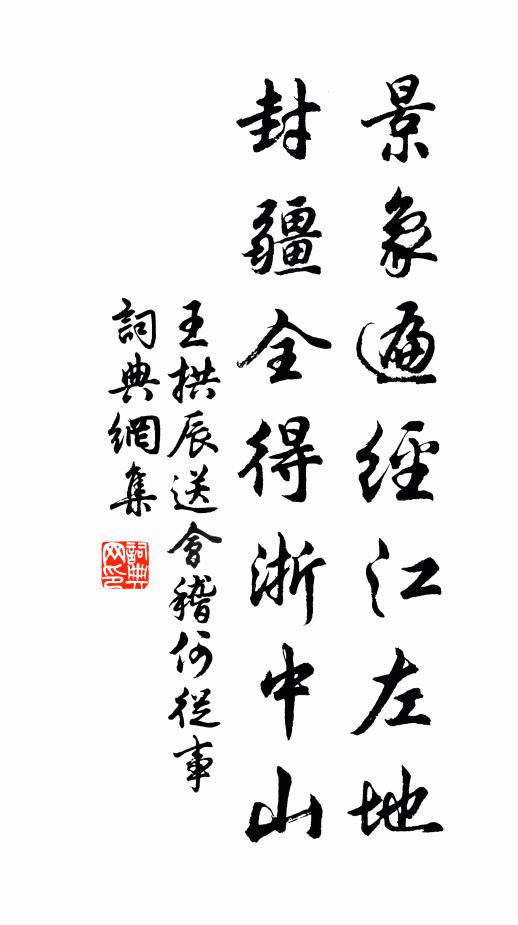 景象遍經江左地
封疆全得浙中山
王拱辰送會稽何從事
詞典網集
詞典網印